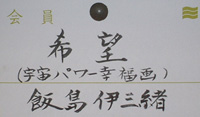 会員
希望
(宇宙パワー幸福画)
飯島伊三緒